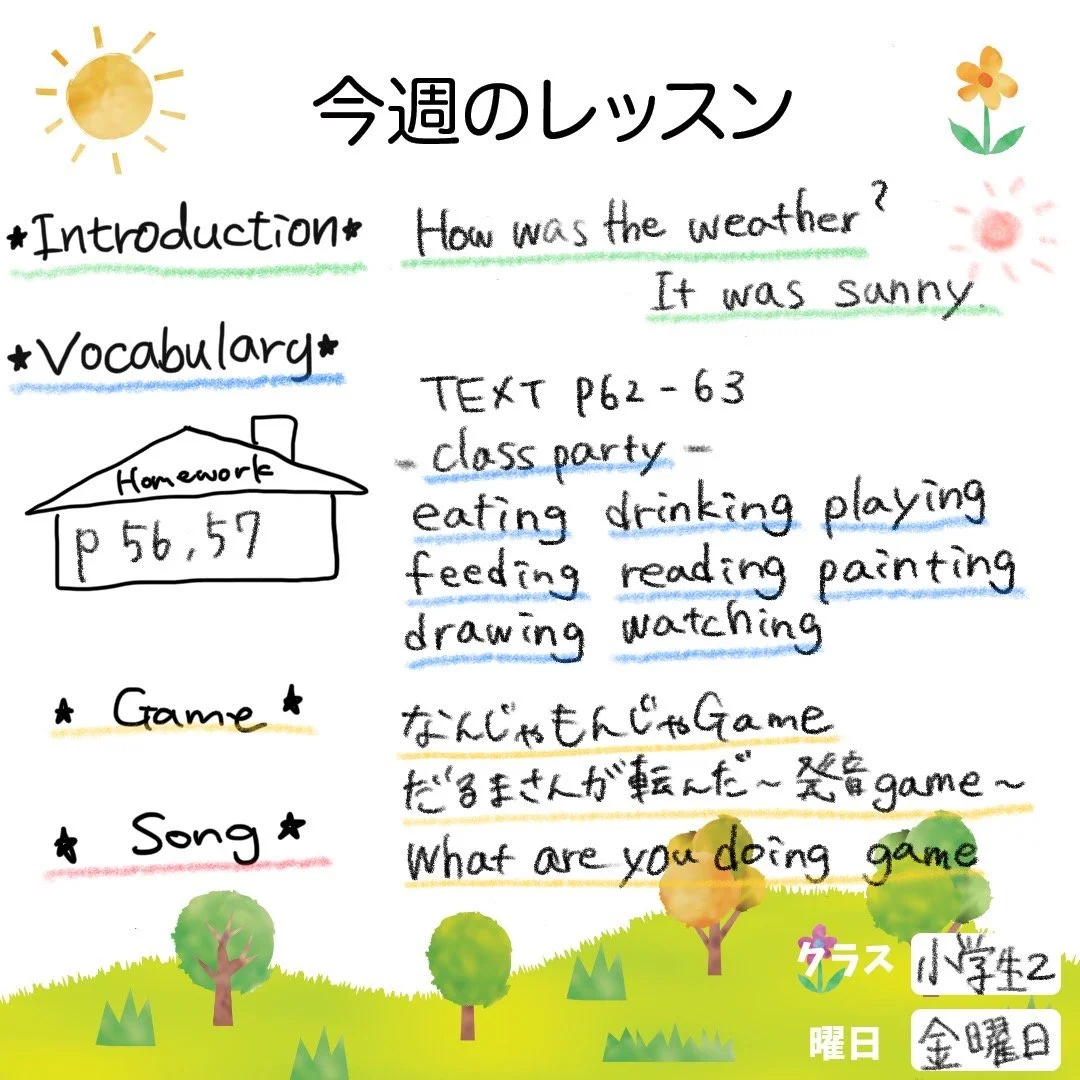 今週のレッスン
★Introduction★
How was the weather?
It was sunny.
★Vocabulary★
TEXT P62-63
- class party -
eating drinking playing
feeding reading painting
drawing watching
Homework
p 56,57
★ Game ★
なんじゃもんじゃGame
だるまさんが転んだ～発音game～
What are you doing game
★ Song ★
クラス 小学生2
曜日 金曜日